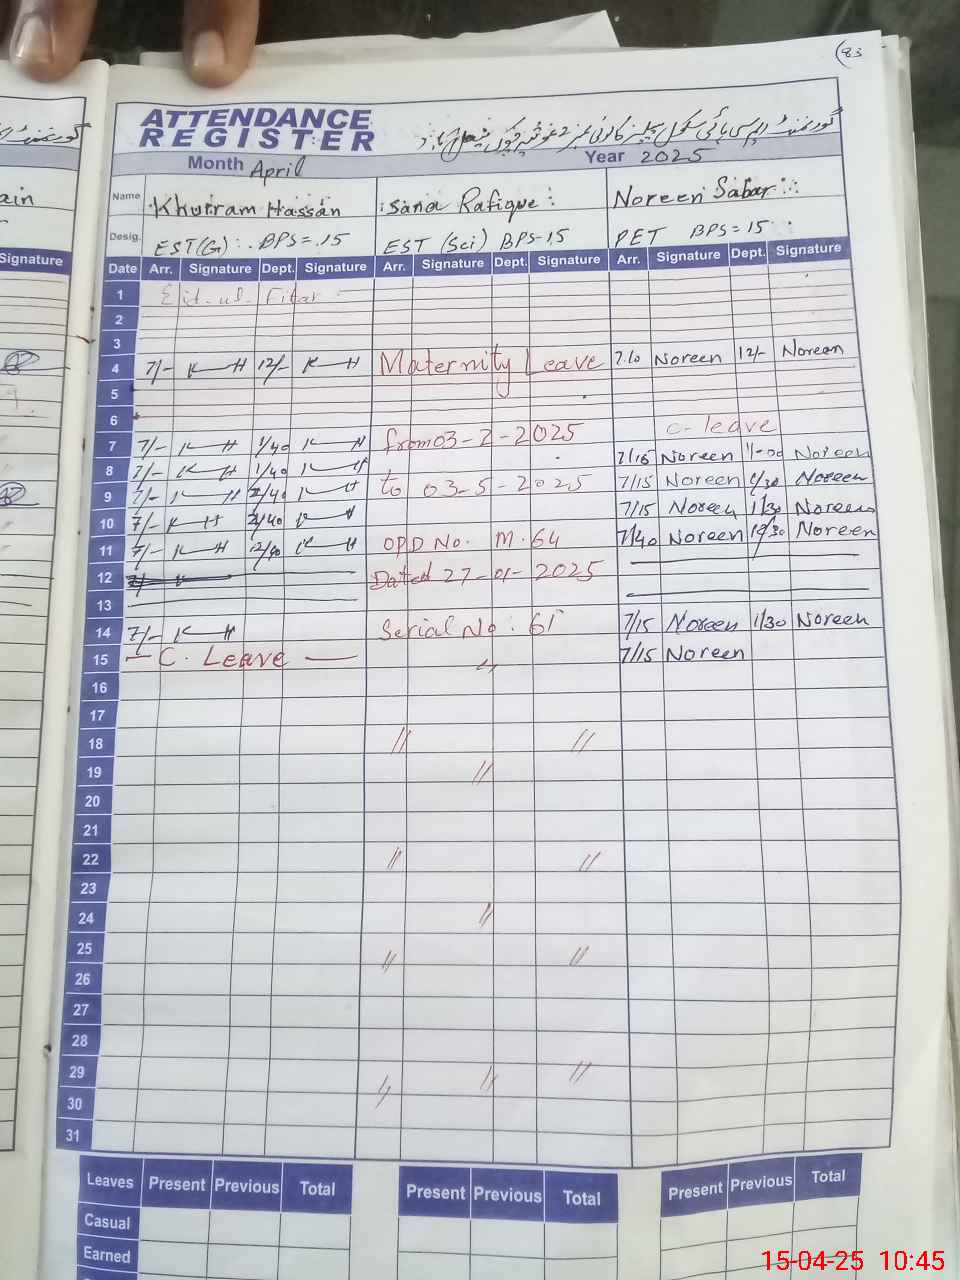 83
ATTENDANCE
REGISTER
Month April Year 2025
ain
Name Khurram Hassan Sana Rafique : Noreen Sabar
Desig. EST(G) BPS=15 EST (Sci) BPS-15 PET BPS=15
Signature
Date Arr. Signature Dept. Signature Arr. Signature Dept. Signature Arr. Signature Dept. Signature
1 Eid-ul-Fitar
2
3
4 7/- K H 12/- K H Maternity Leave 7.10 Noreen 12/- Noreen
5
6
7 7/- K H 1/40 K H from 03-2-2025 C-leave
8 7/- K H 1/40 K H 7/15 Noreen Noreen
9 7/- K H 1/40 K H to 03-5-2025 7/15 Noreen 1/30 Noreen
10 7/- K H K H 7/15 Noreen 1/30 Noreen
11 7/- K H 12/40 K H OPD No. M.64 7/40 Noreen Noreen
12 Dated 27-01-2025
13
14 7/- K H Serial No: 61 7/15 Noreen 1/30 Noreen
15 — C. Leave — 〃 7/15 Noreen
16
17
18 〃 〃
19 〃
20
21
22 〃 〃
23
24 〃
25 〃 〃
26
27
28
29 〃 〃 〃
30
31
Leaves Present Previous Total Present Previous Total Present Previous Total
Casual
Earned
15-04-25 10:45